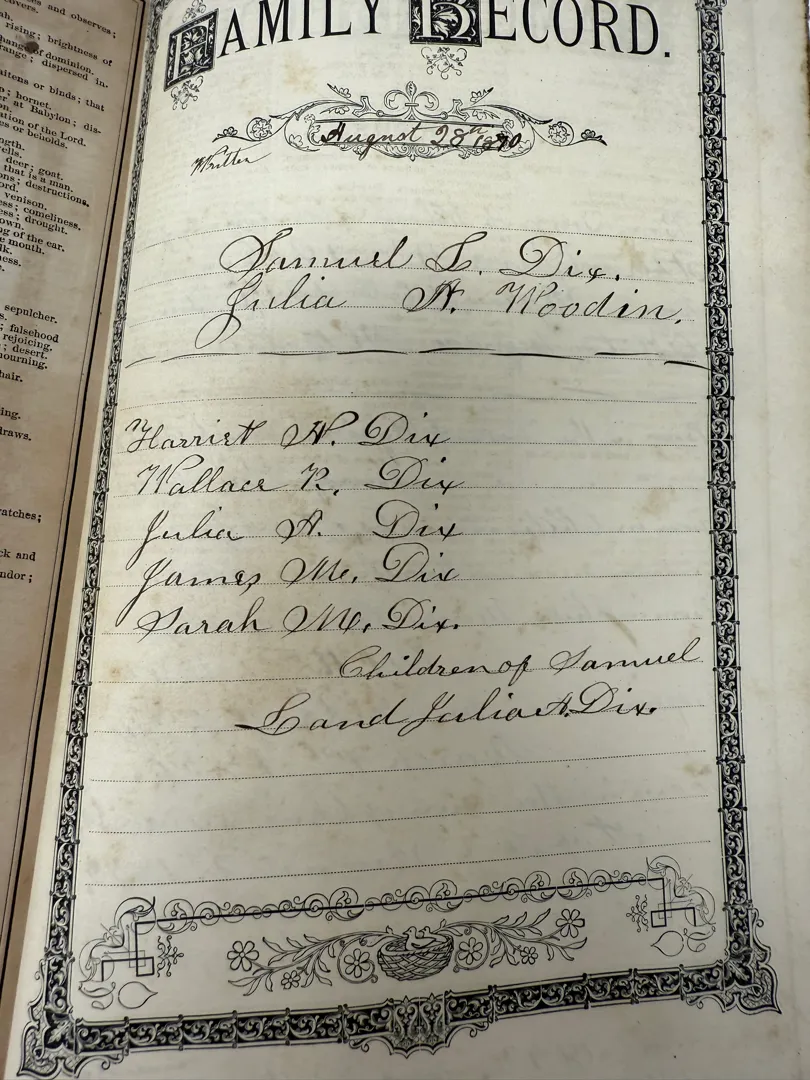 FAMILY RECORD.
August 28th
Written
Samuel L. Dix.
Julia A. Woodin.
Harriet A. Dix
Wallace R. Dix
Julia A. Dix
James M. Dix
Sarah M. Dix.
Children of Samuel
L and Julia A. Dix.
s and observes;
covers.
rising; brightness of
of dominion.
range; dispersed in-
aitens or binds; that
; hornet.
er at Babylon; dis-
ation of the Lord.
es or beholds.
ngth.
vells.
deer; goat.
that is a man.
ons; destructions.
ord.
venison.
ess; comeliness.
ess; drought.
own.
ng of the ear.
e mouth.
lk.
ness.
sepulcher.
s.
; falsehood
rejoicing.
; desert.
mourning.
hair.
ing.
draws.
atches;
ck and
ndor;